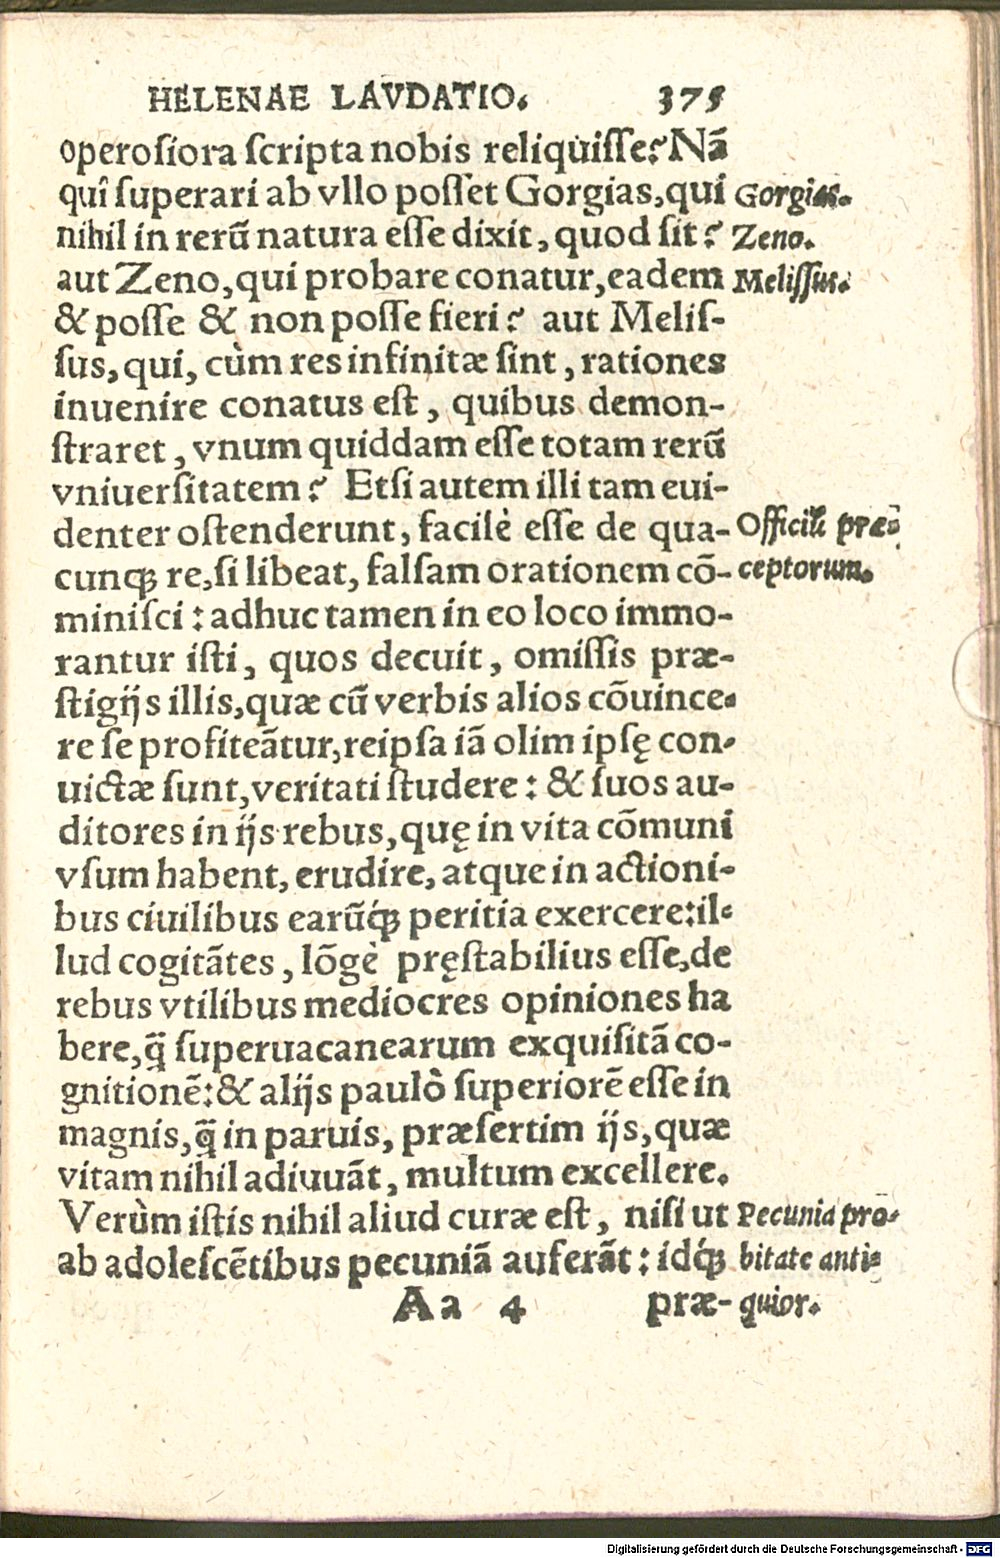 HELENAE LAVDATIO. 375
operosiora scripta nobis reliquisse? Nã
quî superari ab vllo posset Gorgias, qui Gorgias.
nihil in rerũ natura esse dixit, quod sit? Zeno.
aut Zeno, qui probare conatur, eadem Melissus.
& posse & non posse fieri? aut Melis-
sus, qui, cùm res infinitæ sint, rationes
inuenire conatus est, quibus demon-
straret, vnum quiddam esse totam rerũ
vniuersitatem? Etsi autem illi tam eui-
denter ostenderunt, facilè esse de qua- Officiũ præ-
cunq; re, si libeat, falsam orationem cõ- ceptorum.
minisci: adhuc tamen in eo loco immo-
rantur isti, quos decuit, omissis præ-
stigijs illis, quæ cũ verbis alios cõuince-
re se profiteãtur, reipsa iã olim ipsę con-
uictæ sunt, veritati studere: & suos au-
ditores in ijs rebus, quę in vita cõmuni
vsum habent, erudire, atque in actioni-
bus ciuilibus earũq́; peritia exercere: il-
lud cogitãtes, lõgè pręstabilius esse, de
rebus vtilibus mediocres opiniones ha
bere, q̃ superuacanearum exquisitã co-
gnitionẽ: & alijs paulò superiorẽ esse in
magnis, q̃ in paruis, præsertim ijs, quæ
vitam nihil adiuuãt, multum excellere.
Verùm istis nihil aliud curæ est, nisi ut Pecunia pro-
ab adolescẽtibus pecuniã auferãt: idq́; bitate anti-
Aa 4 præ- quior.
Digitalisierung gefördert durch die Deutsche Forschungsgemeinschaft - DFG